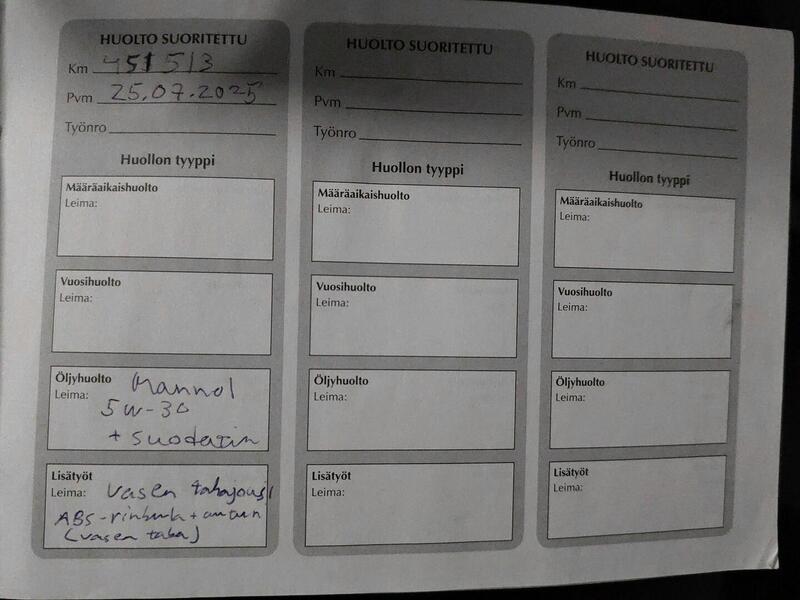 HUOLTO SUORITETTU
Km 451513
Pvm 25.07.2025
Työnro
Huollon tyyppi
Määräaikaishuolto
Leima:
Vuosihuolto
Leima:
Öljyhuolto Mannol
Leima: 5W-30
+ suodatin
Lisätyöt
Leima: Vasen takajousi
ABS-rinkula + anturi
(vasen taka)
HUOLTO SUORITETTU
Km
Pvm
Työnro
Huollon tyyppi
Määräaikaishuolto
Leima:
Vuosihuolto
Leima:
Öljyhuolto
Leima:
Lisätyöt
Leima:
HUOLTO SUORITETTU
Km
Pvm
Työnro
Huollon tyyppi
Määräaikaishuolto
Leima:
Vuosihuolto
Leima:
Öljyhuolto
Leima:
Lisätyöt
Leima: